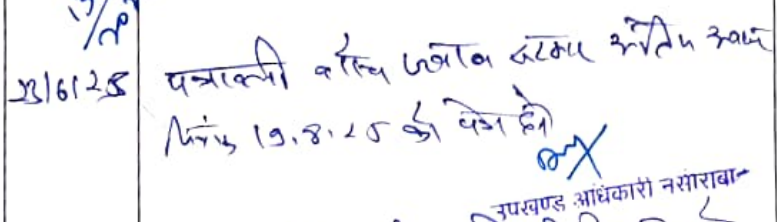 23/6/25 पत्रावली वास्ते जवाब सरकार अंतिम अवसर
दिनांक 19.8.25 को पेश हो
उपखण्ड अधिकारी नसीराबाद